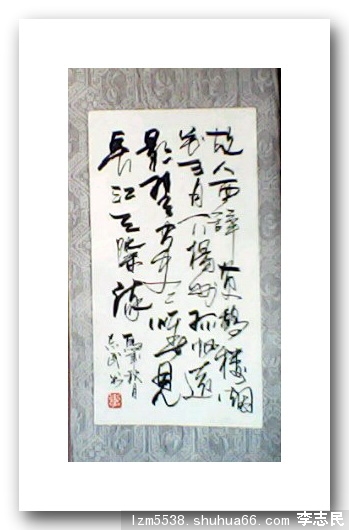 故人西辞黄鹤楼烟
花三月下揚州孤帆遠
影碧空尽唯見
長江天際流
秋月
志民书
lzm5538.shuhua66.com 李志民